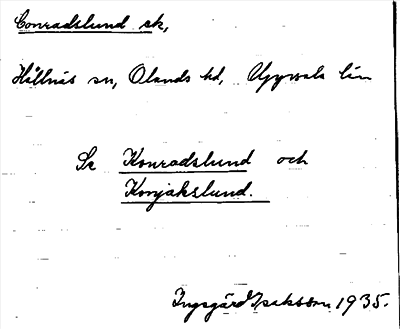 Conradslund sk,
Hållnäs sn, Olands hd, Uppsala län
Se Konradslund och
Konjakslund.
Ingegärd Isaksson 1935.